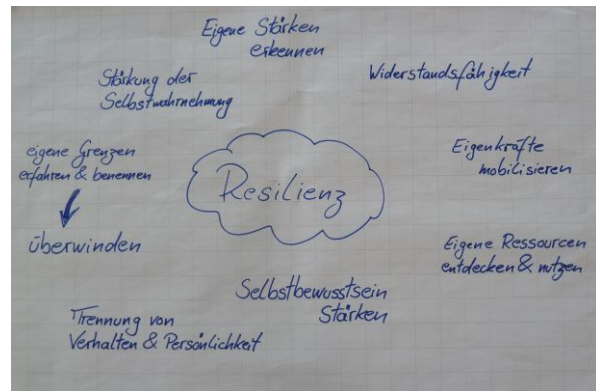 Eigene Stärken
erkennen
Stärkung der
Selbstwahrnehmung
Widerstandsfähigkeit
eigene Grenzen
erfahren & benennen
überwinden
Resilienz
Eigenkräfte
mobilisieren
Eigene Ressourcen
entdecken & nutzen
Selbstbewusstsein
Stärken
Trennung von
Verhalten & Persönlichkeit